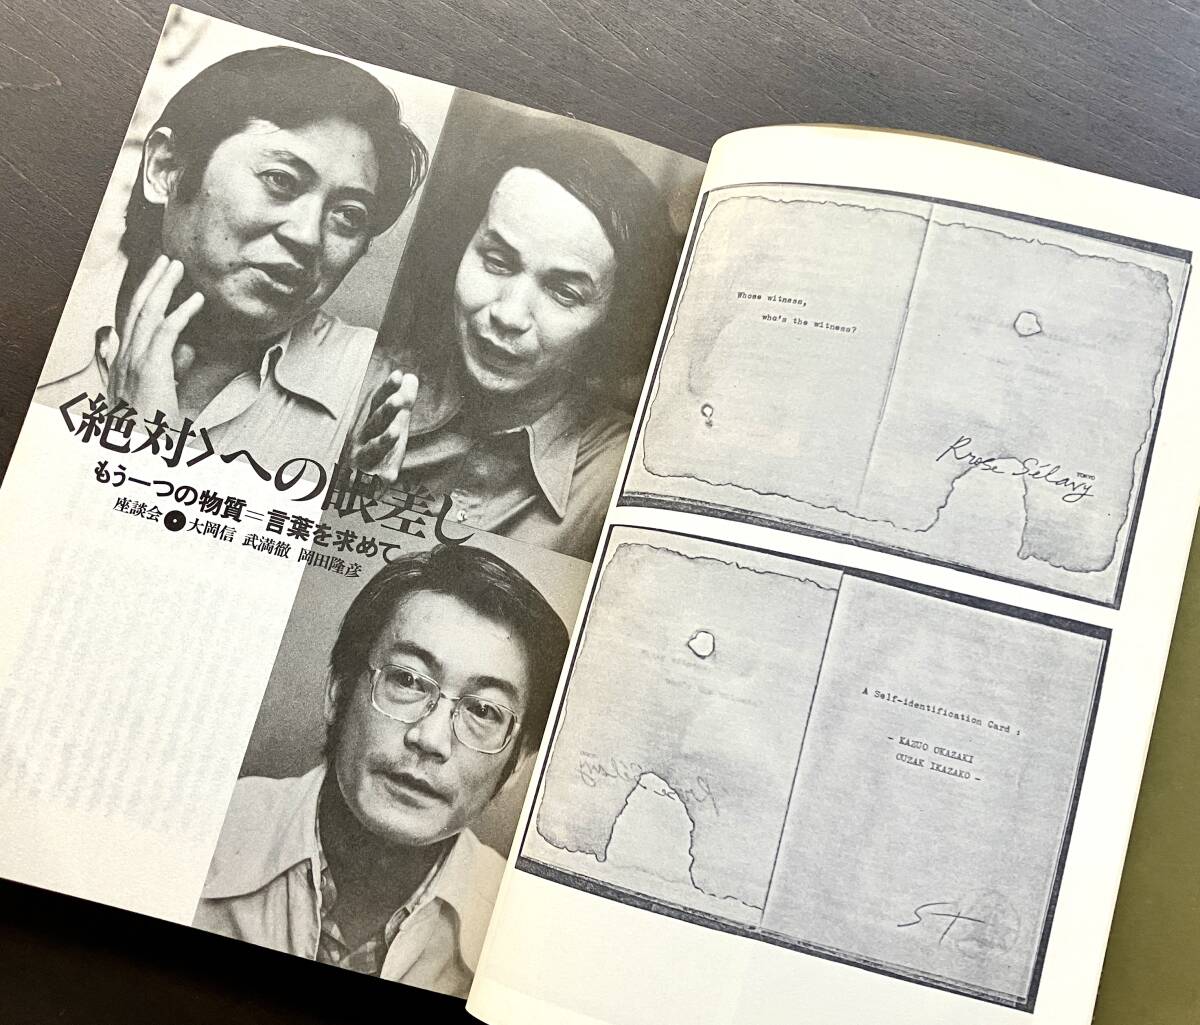 〈絶対〉への眼差し
もう一つの物質=言葉を求めて
座談会 大岡信 武満徹 岡田隆彦
Whose witness,
who's the witness?
Rrose Sélavy
TOKYO
A Self-identification Card :
- KAZUO OKAZAKI
OUZAK IKAZAKO -
ST